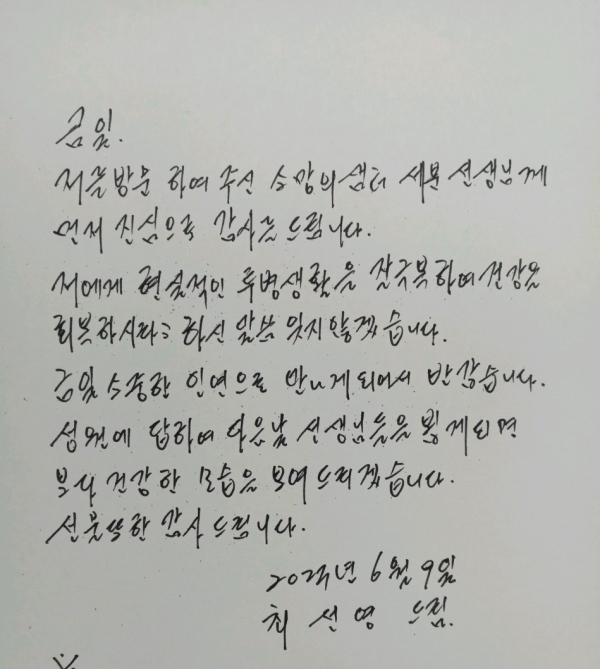 금일.
저를 방문 하여 주신 소망의샘터 세분 선생님께
먼저 진심으로 감사를 드립니다.
저에게 현실적인 투병생활을 잘극복하여 건강을
회복하시라는 하신 말씀 잊지않겠습니다.
금일 소중한 인연으로 만나게되어서 반갑습니다.
성원에 답하여 다음날 선생님들을 뵙게되면
보다 건강한 모습을 보여드리겠습니다.
선물또한 감사드립니다.
6월 9일
최 선 영 드림.